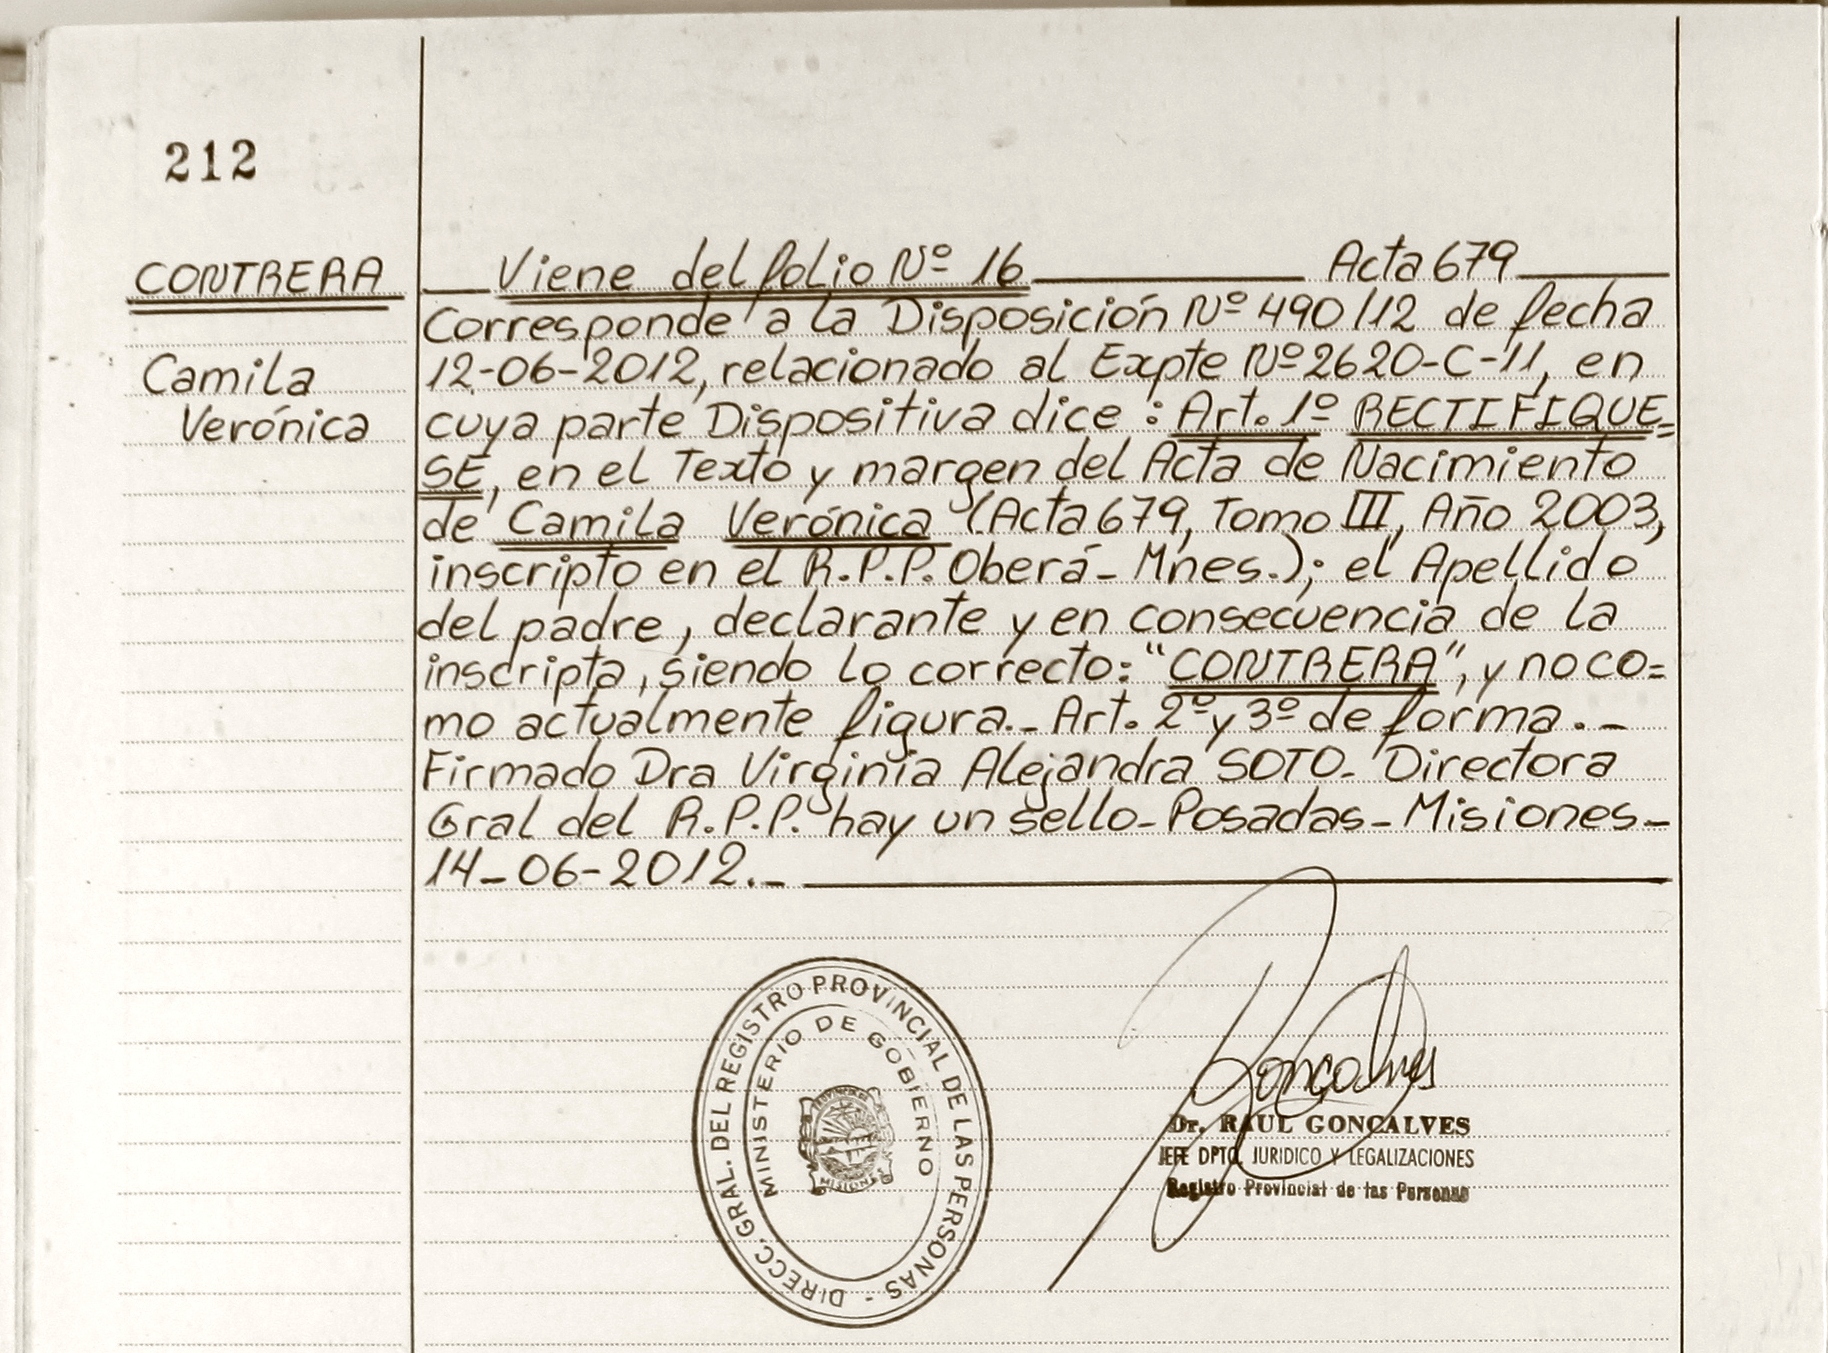 212
CONTRERA
Camila
Verónica
Viene del folio Nº 16 Acta 679
Corresponde a la Disposición Nº 490/12 de fecha
12-06-2012, relacionado al Expte Nº 2620-C-11, en
cuya parte Dispositiva dice: Art. 1º RECTIFIQUE=
SE, en el Texto y margen del Acta de Nacimiento
de Camila Verónica (Acta 679, Tomo III, Año 2003,
inscripto en el R.P.P. Oberá - Mnes.); el Apellido
del padre, declarante y en consecuencia de la
inscripta, siendo lo correcto: "CONTRERA", y no co=
mo actualmente figura._ Art. 2º y 3º de forma._
Firmado Dra Virginia Alejandra SOTO- Directora
Gral del R.P.P. hay un sello- Posadas- Misiones-
14-06-2012._
DIRECC. GRAL. DEL REGISTRO PROVINCIAL DE LAS PERSONAS -
MINISTERIO DE GOBIERNO
MISIONES
Goncalves
Dr. RAUL GONCALVES
JEFE DPTO. JURIDICO Y LEGALIZACIONES
Registro Provincial de las Personas